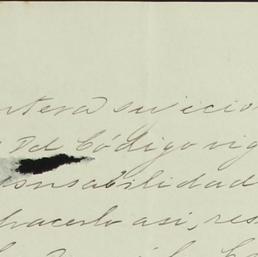 ntera su vicio
Del Código vig
onsabilidad
hacerlo asi, res